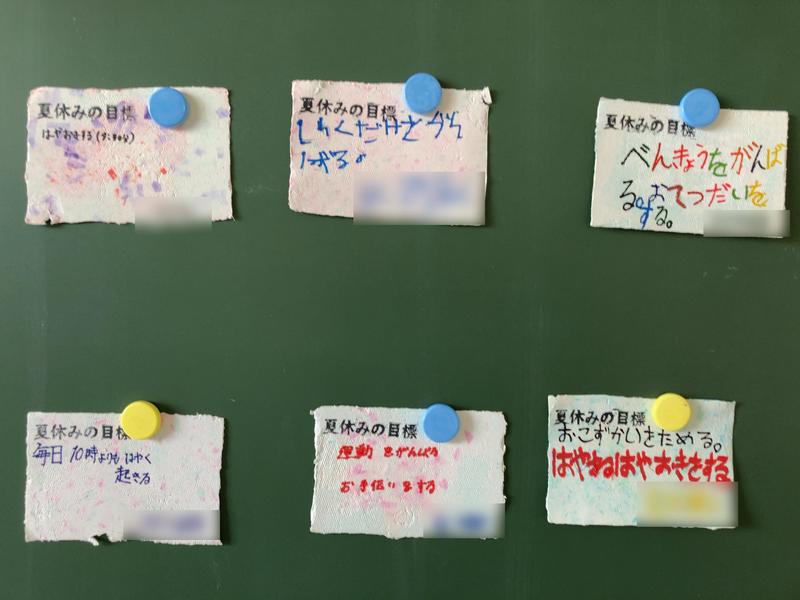 夏休みの目標
はやおきする
夏休みの目標
しゅくだいをがん
ばる。
夏休みの目標
べんきょうをがんば
る。おてつだいを
する。
夏休みの目標
毎日 10時よりも はやく
起きる
夏休みの目標
運動をがんばる
お手伝いをする
夏休みの目標
おこずかいをためる。
はやねはやおきをする